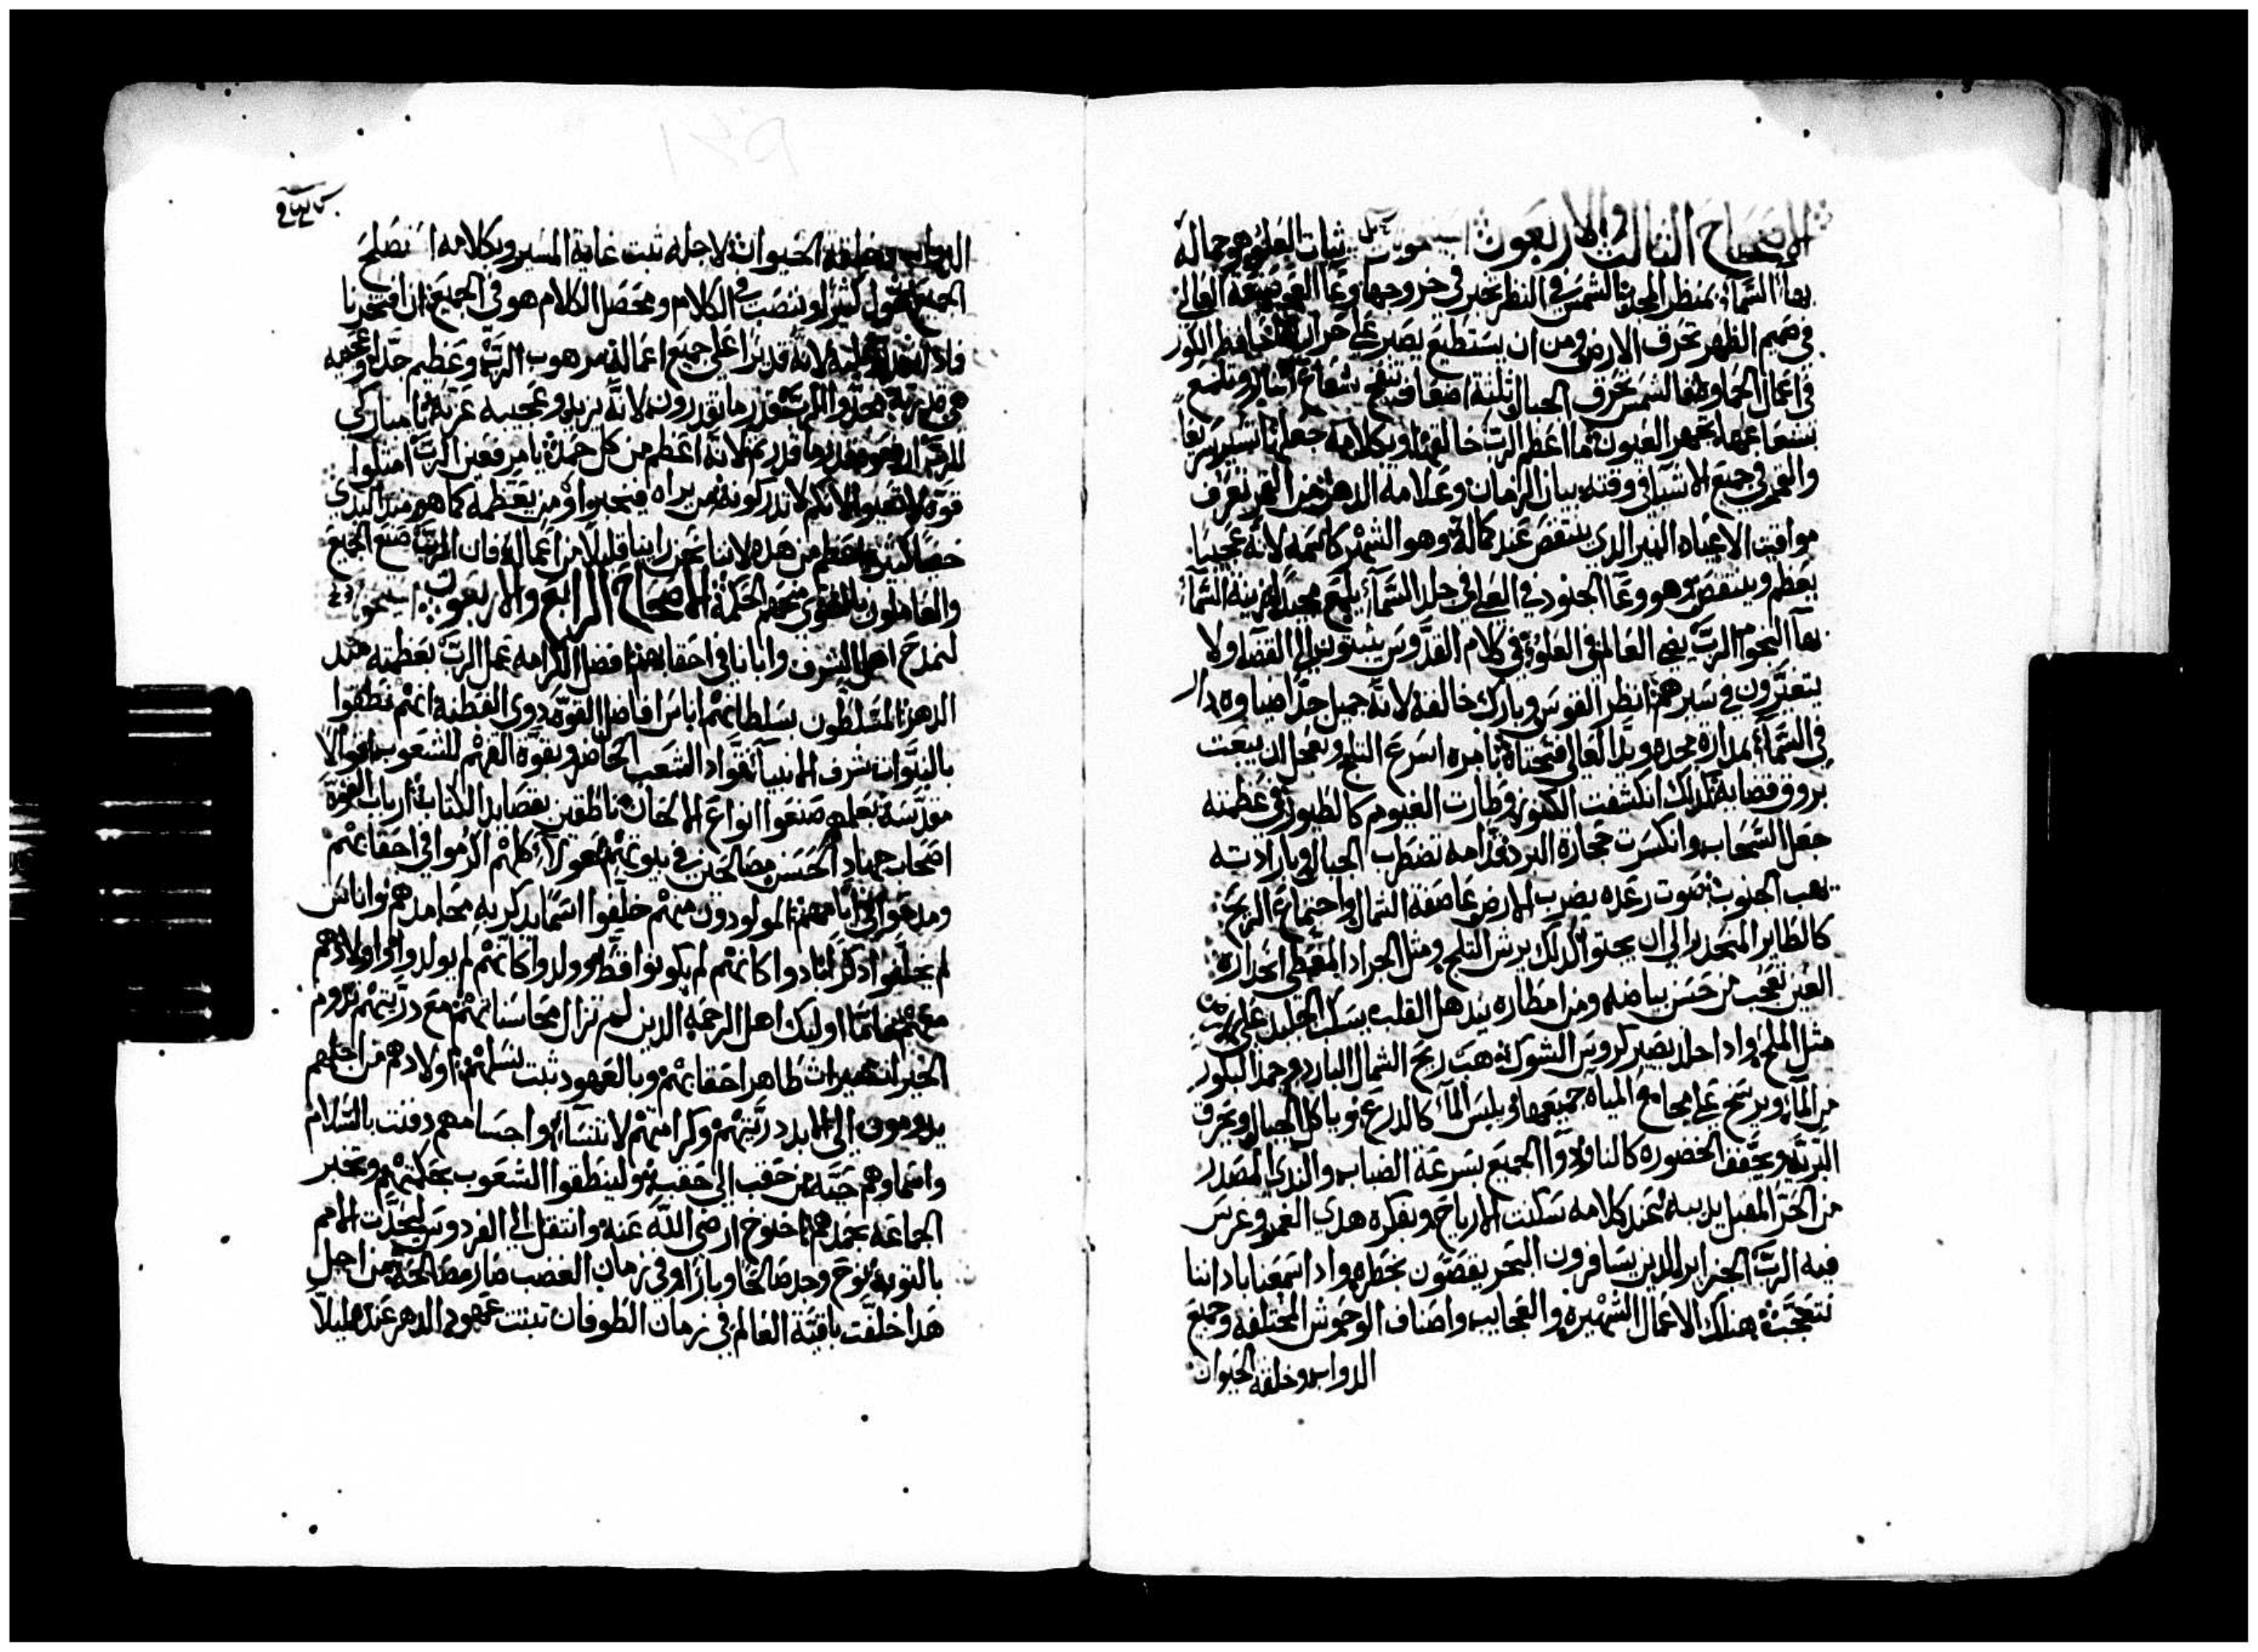 الاصحاح الثالث والاربعون ثبات العلو هو جماله
بهاء السماء بمنظر المجد الشمس في النظر تخبر في خروجها وعاء العجيب صنعة العالي
في صميم الظهر تحرق الارض ومن ان يستطيع يصبر على حرارتها حافظ الكور
في اعمال الحما وهذا الشمس تحرق الجبال ثلثة اضعاف تنفخ شعاع النار وتلمع
بشعاعها تجهر العيون ما اعظم الرب خالقها وبكلامه جعلها تسير سريعا
والقمر في جميع الاشيا في وقته بيان الزمان وعلامه الدهر من القمر تعرف
مواقيت الاعياد النير الذي ينتقص عند كماله وهو الشهر كاسمه لانه عجيبا
يعظم وينتقص هو وعاء الجنود في العلا في جلد السماء يلمع مجدا زينة السماء
بهاء النجوم الرب يضي العالم في العلو في كلام القدوس يثبتون الى القضا ولا
يتغيرون في سيرهم انظر القوس وبارك خالقه لانه جميل جدا ضياوه دار
في السماء بمداره مجده ويدا العالي فتحتاه بامره اسرع الثلج ويعجل ان يبعث
بروق قضايه لذلك انكشفت الكنوز وطارت الغيوم كالطيور في عظمته
جعل السحاب وانكسرت حجارة البرد قدامه تضطرب الجبال وبارادته
يهب الجنوب صوت رعده يضرب الارض عاصفة الشمال واجتماع الريح
كالطاير المنحدر الى ان يجتوا لذلك يرش الثلج ومثل الجراد المغطي انحداره
العين تعجب من حسن بياضه ومن امطاره يندهل القلب يسكب الجليد على الارض
مثل الملح واذا جلد يصير كروس الشوك هبت ريح الشمال البارده وجمد البلور
من الماء ويرتخي على مجامع المياه جميعها ويلبس الماء كالدرع وياكل الجبال ويحرق
البرية ويجفف الخضوره كالنار ودوا الجميع بسرعة الضباب والندى المصدر
من الحر المقبل يديبه عند كلامه سكنت الارياح وبفكره هدي الغمر وغرس
فيه الرب الجزاير الذين يسافرون البحر يقصون بخطره واذا سمعنا باداننا
نتعجب هناك الاعمال الشهيره والعجايب واصناف الوحوش المختلفه وجميع
الدواب وخلقة الحيوان
الدواب وخلقة الحيوان لاجله ثبت غاية المسير وبكلامه انصلح
الجميع نقول كثيرا وننصب في الكلام ومحصل الكلام هو في الجميع ان افتخرنا
فاذا لانه قديرا على جميع اعماله مرهوب الرب وعظيم جدا وعجيبه
هي مجدوا الرب بقدر ما تقدرون لانه يزيد وعجيبه عزته يا مباركي
الرب ارفعوه بقدر ما قدرتم لانه اعظم من كل حمد
قوه لا تتعبوا لانكم لا تدركونه من يراه فيخبر ومن يعظمه كما هو منذ البدي
خصالا كثيره اعظم من هذه لاننا نحن راينا قليلا من اعماله فان الرب صنع الجميع
والعاملون بالتقوى منحهم الحكمة الاصحاح الرابع والاربعون
لنمدح اهل الشرف وابانا في احقابهم فضل الكرامه عمل الرب بعظمته منذ
الدهر المتسلطون بسلطاتهم اناس افاضل القوه ذوي الفطنه انهم نطقوا
بالنبوات شرف الانبياء قواد الشعب الحاضر وبقوة الفهم للشعوب اقوالا
مقدسة بعلمهم صنعوا انواع الالحان ناطقين بقصايد الكتابة ارباب القوة
اصحاب جهاد الحسن مصالحين في بيوتهم هولا كلهم اكرموا في احقابهم
ومدحوا في ايامهم المولودون منهم خلفوا اسما بذكر به محامدهم واناس
لم يخلفوا ذكر لنا بادوا كانهم لم يكونوا قط وولدوا كانهم لم يولدوا واولادهم
معهم تماما اوليك اهل الرحمه الذين لم تزال محاسناتهم مع ذريتهم تدوم
الخيرات ميراث طاهر احقابهم وبالعهود ثبت نسلهم اولادهم من اجلهم
يدومون الى الابد ذريتهم وكرامتهم لا تنسا واجسامهم دفنت بالسلام
واسماوهم حيه من حقب الى حقب ولينطقوا الشعوب بحكمتهم وتخبر
الجماعة بحمدهم اخنوخ ارضى الله عنه وانتقل الى الفردوس ليحدث الامم
بالتوبة نوح وجد صالحا وبارا وفي زمان الغضب صار مصالحة من اجل
هذا خلفت باقية العالم في زمان الطوفان تبتت عهود الدهر عنده ليلا